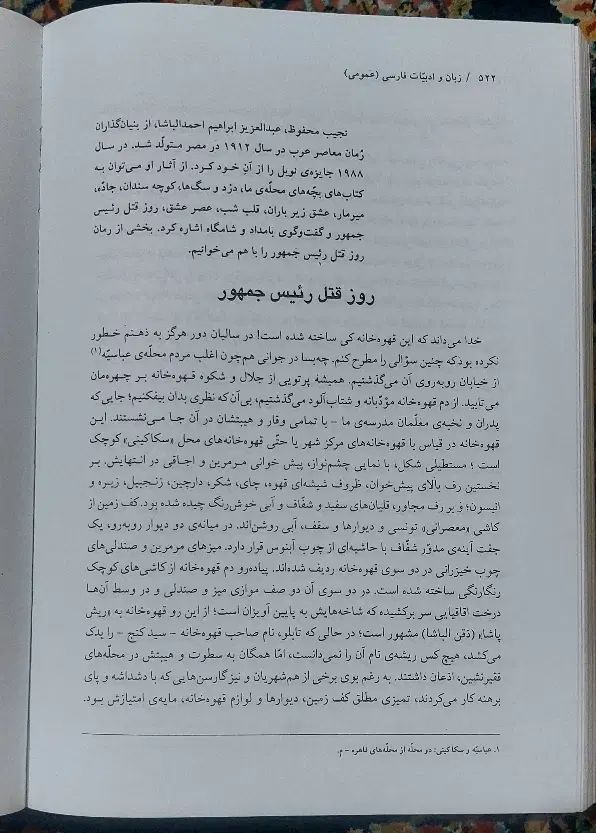 ۵۲۲ / زبان و ادبیّات فارسی (عمومی)
نجیب محفوظ، عبدالعزیز ابراهیم احمدالباشا، از بنیان‌گذاران
رُمان معاصر عرب در سال ۱۹۱۲ در مصر متولّد شد. در سال
۱۹۸۸ جایزه‌ی نوبل را از آنِ خود کرد. از آثار او می‌توان به
کتاب‌های بچّه‌های محلّه‌ی ما، دزد و سگ‌ها، کوچه سندان، جادّه،
میرمار، عشق زیر باران، قلب شب، عصر عشق، روز قتل رئیس
جمهور و گفت‌وگوی بامداد و شامگاه اشاره کرد. بخشی از رمان
روز قتل رئیس جمهور را با هم می‌خوانیم.
روز قتل رئیس جمهور
خدا می‌داند که این قهوه‌خانه کی ساخته شده است! در سالیان دور هرگز به ذهنم خطور
نکرده بود که چنین سؤالی را مطرح کنم. چه‌بسا در جوانی هم‌چون اغلب مردم محلّه‌ی عباسیّه(۱)
از خیابان روبه‌روی آن می‌گذشتیم. همیشهٔ پرتویی از جلال و شکوه قهوه‌خانه بر چهره‌مان
می‌تابید. از دم قهوه‌خانه مؤدّبانه و شتاب‌آلود می‌گذشتیم، بی‌آن‌که نظری بدان بیفکنیم؛ جایی‌که
پدران و نخبه‌ی معلّمان مدرسه‌ی ما - با تمامی وقار و هیبتشان در آن جا می‌نشستند. این
قهوه‌خانه در قیاس با قهوه‌خانه‌های مرکز شهر یا حتّی قهوه‌خانه‌های محل «سکاکینی» کوچک
است ؛ مستطیلی شکل، با نمایی چشم‌نواز، پیش خوانی مرمرین و اجاقی در انتهایش. بر
نخستین رف بالای پیش‌خوان، ظروف شیشه‌ای قهوه، چای، شکر، دارچین، زنجبیل، زیره و
انیسون؛ و بر رف مجاور، قلیان‌های سفید و شفّاف و آبی خوش‌رنگ چیده شده بود. کف زمین از
کاشی «معصرانی» تونسی و دیوارها و سقف، آبی روشن‌اند. در میانه‌ی دو دیوار روبه‌رو، یک
جفت آینه‌ی مدوّر شفّاف با حاشیه‌ای از چوب آبنوس قرار دارد. میزهای مرمرین و صندلی‌های
چوب خیزرانی در دو سوی قهوه‌خانه ردیف شده‌اند. پیاده‌رو دم قهوه‌خانه از کاشی‌های کوچک
رنگارنگی ساخته شده است. در دو سوی آن دو صف موازی میز و صندلی و در وسط آن‌ها
درخت اقاقیایی سر برکشیده که شاخه‌هایش به پایین آویزان است؛ از این رو قهوه‌خانه به «ریش
پاشا» (ذقن الباشا) مشهور است؛ در حالی که تابلو، نام صاحب قهوه‌خانه - سید کنج - را یدک
می‌کشد، هیچ‌کس ریشه‌ی نام آن را نمی‌دانست، امّا همگان به سطوت و هیبتش در محلّه‌های
فقیرنشین، اذعان داشتند. به رغم بوی برخی از هم‌شهریان و نیز گارسن‌هایی که با دشداشه و پای
برهنه کار می‌کردند، تمیزی مطلق کف زمین، دیوارها و لوازم قهوه‌خانه، مایه‌ی امتیازش بود.
۱. عباسیّه و سکاکینی: دو محلّه از محلّه‌های قاهره - م.